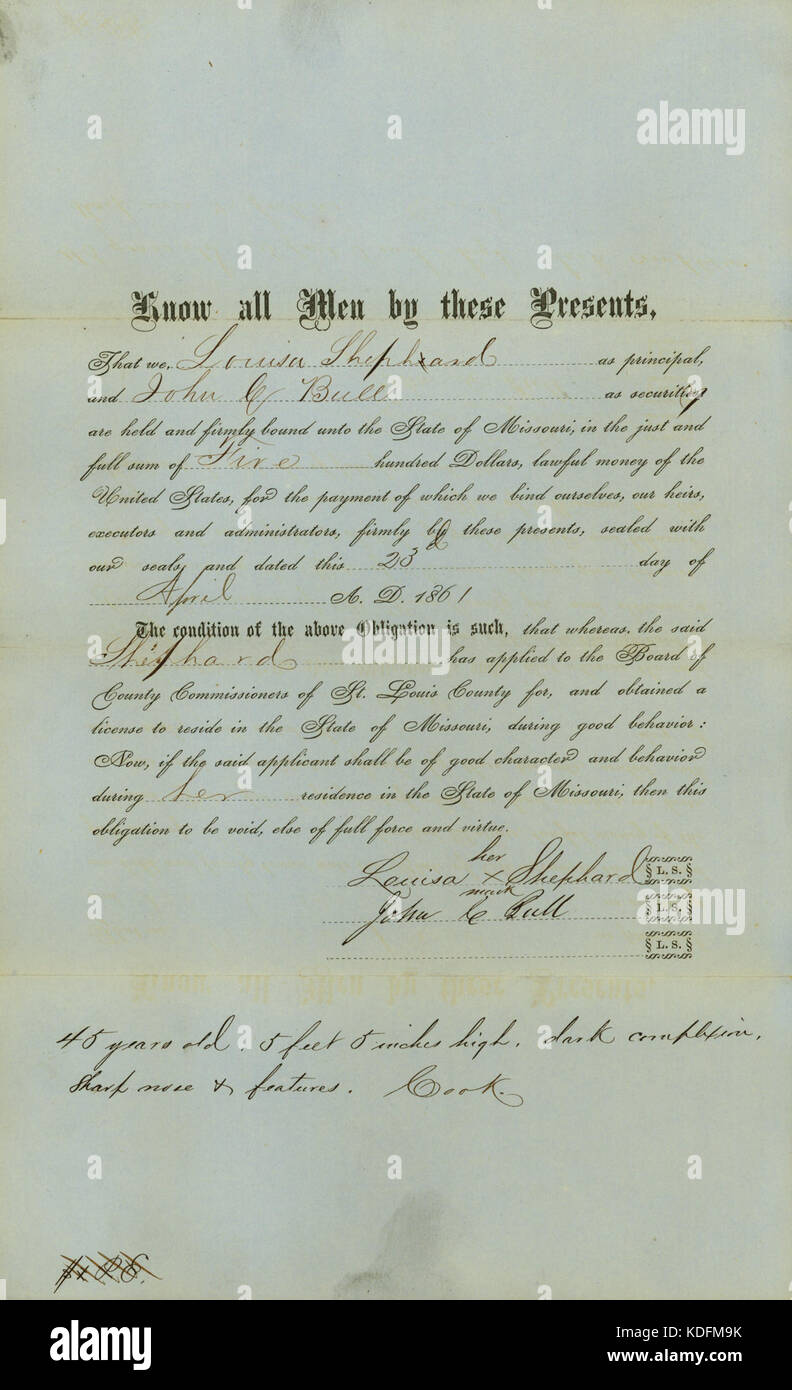 Know all Men by these Presents,
That we, Louisa Shephard as principal,
and John C Bull as securities
are held and firmly bound unto the State of Missouri, in the just and
full sum of Five hundred Dollars, lawful money of the
United States, for the payment of which we bind ourselves, our heirs,
executors and administrators, firmly by these presents, sealed with
our seals, and dated this 23d day of
April A. D. 1861
The condition of the above Obligation is such, that whereas, the said
Shephard has applied to the Board of
County Commissioners of St. Louis County for, and obtained a
license to reside in the State of Missouri, during good behavior:
Now, if the said applicant shall be of good character and behavior
during her residence in the State of Missouri, then this
obligation to be void, else of full force and virtue.
her
Louisa x Shephard § L. S. §
mark
John C Bull § L. S. §
§ L. S. §
45 years old. 5 feet 5 inches high. dark complexion.
Sharp nose & features. Cook.
alamy
alamy
Image ID: KDFM9K
www.alamy.com